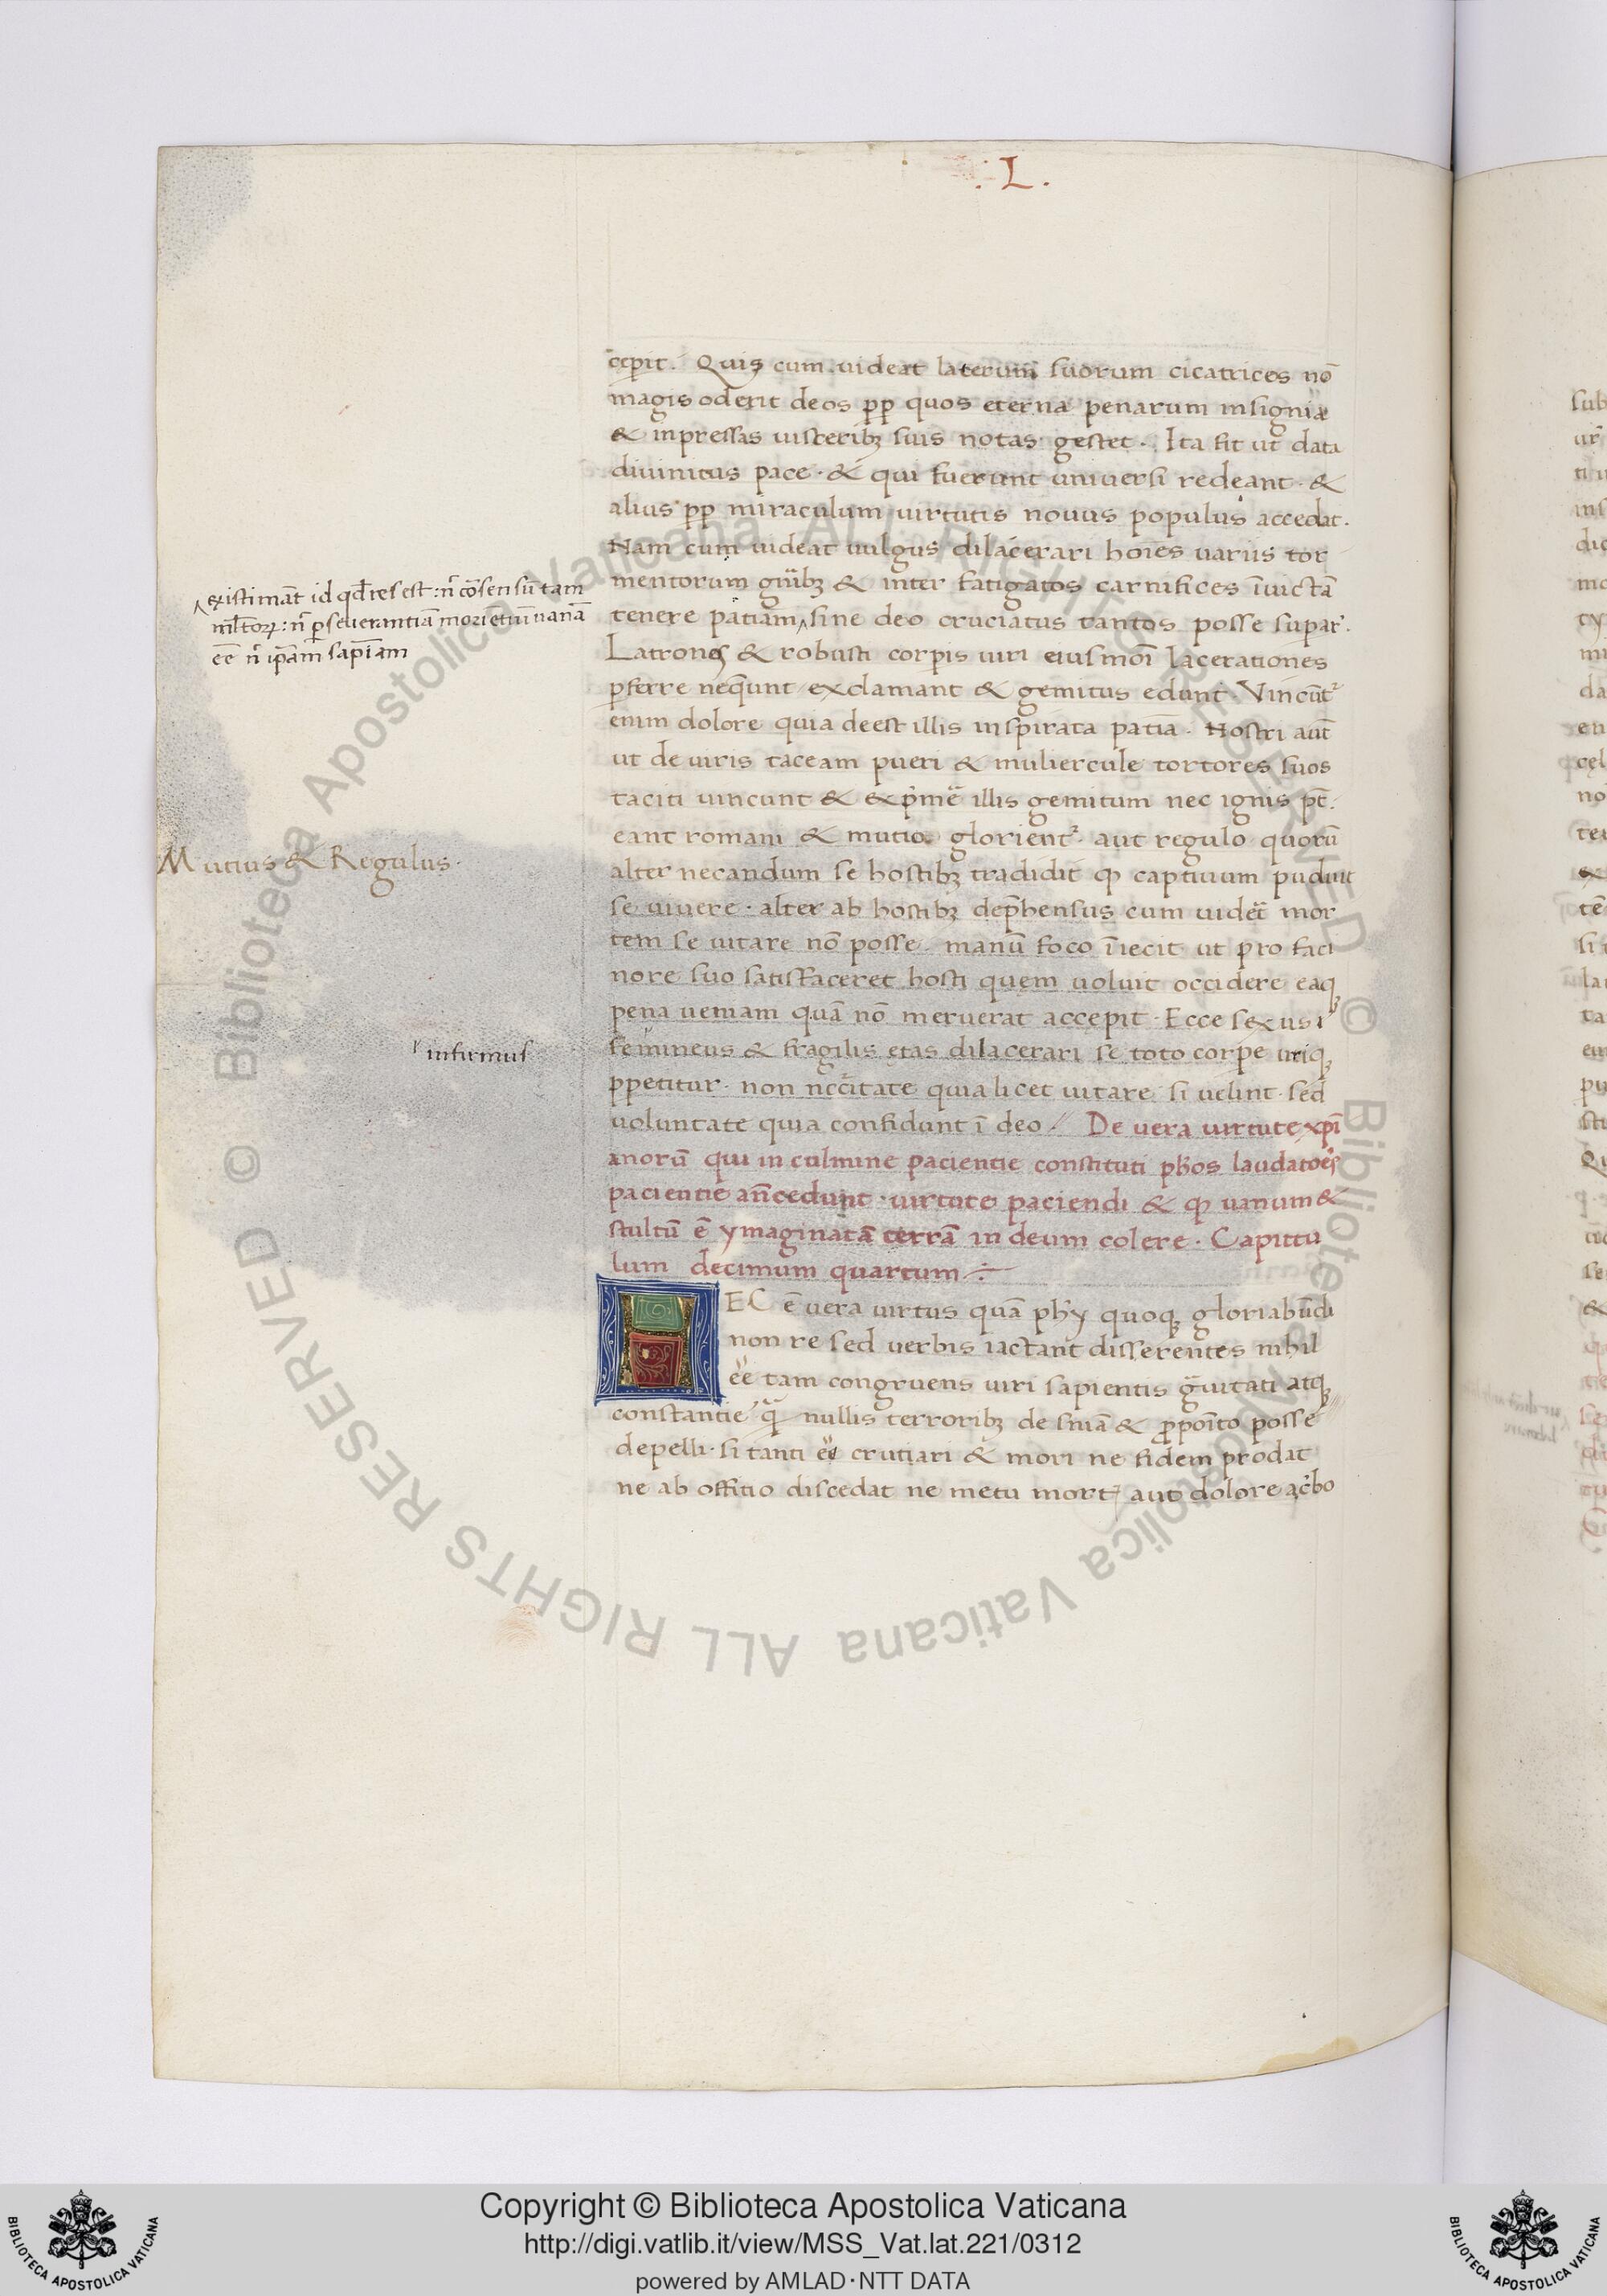 .L.
cepit. Quis cum uideat laterum suorum cicatrices nō
magis oderit deos pp quos eterna penarum insignia
& inpressas uisceribȝ suis notas gestet. Ita fit ut data
diuinitus pace · & qui fuerunt uniuersi redeant · &
alius pp miraculum uirtutis nouus populus accedat.
Nam cum uideat uulgus dilacerari hoīes uariis tor
mentorum gn̄ibȝ & inter fatigatos carnifices īuictā
tenere patiam ^ sine deo cruciatus tantos posse supar̄.
existimāt id qd̄ res est: n̄ cōsensū tam
ml̄torꝝ: n̄ perseuerantiā morientiū uanā
eē n̄ ip̄am sap̄iam
Latrones & robusti corpis uiri eiusmoī lacerationes
pferre neq̄unt exclamant & gemitus edunt. Vincūt᷑
enim dolore quia deest illis inspirata patia. Nostri aūt
ut de uiris taceam pueri & muliercule tortores suos
taciti uincunt & exp̍mē illis gemitum nec ignis pt̄.
eant romani & mutio glorient᷑ aut regulo quorū
Mutius & Regulus.
alter necandum se hostibȝ tradidit ꝙ captiuum puduit
se uiuere · alter ab hostibȝ dep̄hensus cum uidet̄ mor
tem se uitare nō posse manū foco īiecit ut pro faci
nore suo satisfaceret hosti quem uoluit occidere eaqȝ
pena ueniam quā nō meruerat accepit. Ecce sexus i
infirmus
femineus & fragilis etas dilacerari se toto corpe uriqȝ
ppetitur · non nec̄itate quia licet uitare si uelint · sed
uoluntate quia confidunt ī deo / De uera uirtute xp̄i
anorū qui in culmine pacientie constituti ph̄os laudatoēs
pacientie an̄cedunt · uirtute paciendi & ꝙ uanum &
stultū ē ymaginatā terrā in deum colere. Capittu
lum decimum quartum
HEC ē uera uirtus quā phȳ quoqȝ gloriabūdi
non re sed uerbis iactant disserentes nihil
eē tam congruens uiri sapientis ḡuitati atqȝ
constantie q̄ nullis terroribȝ de snīa & pr̄poīto posse
depelli · si tanti eē crutiari & mori ne fidem prodat
ne ab offitio discedat ne metu mort᷑ aut dolore ac̍bo
© Biblioteca Apostolica Vaticana ALL RIGHTS RESERVED © Biblioteca Apostolica Vaticana ALL RIGHTS RESERVED
Copyright © Biblioteca Apostolica Vaticana
http://digi.vatlib.it/view/MSS_Vat.lat.221/0312
powered by AMLAD·NTT DATA
BIBLIOTECA APOSTOLICA VATICANA
BIBLIOTECA APOSTOLICA VATICANA